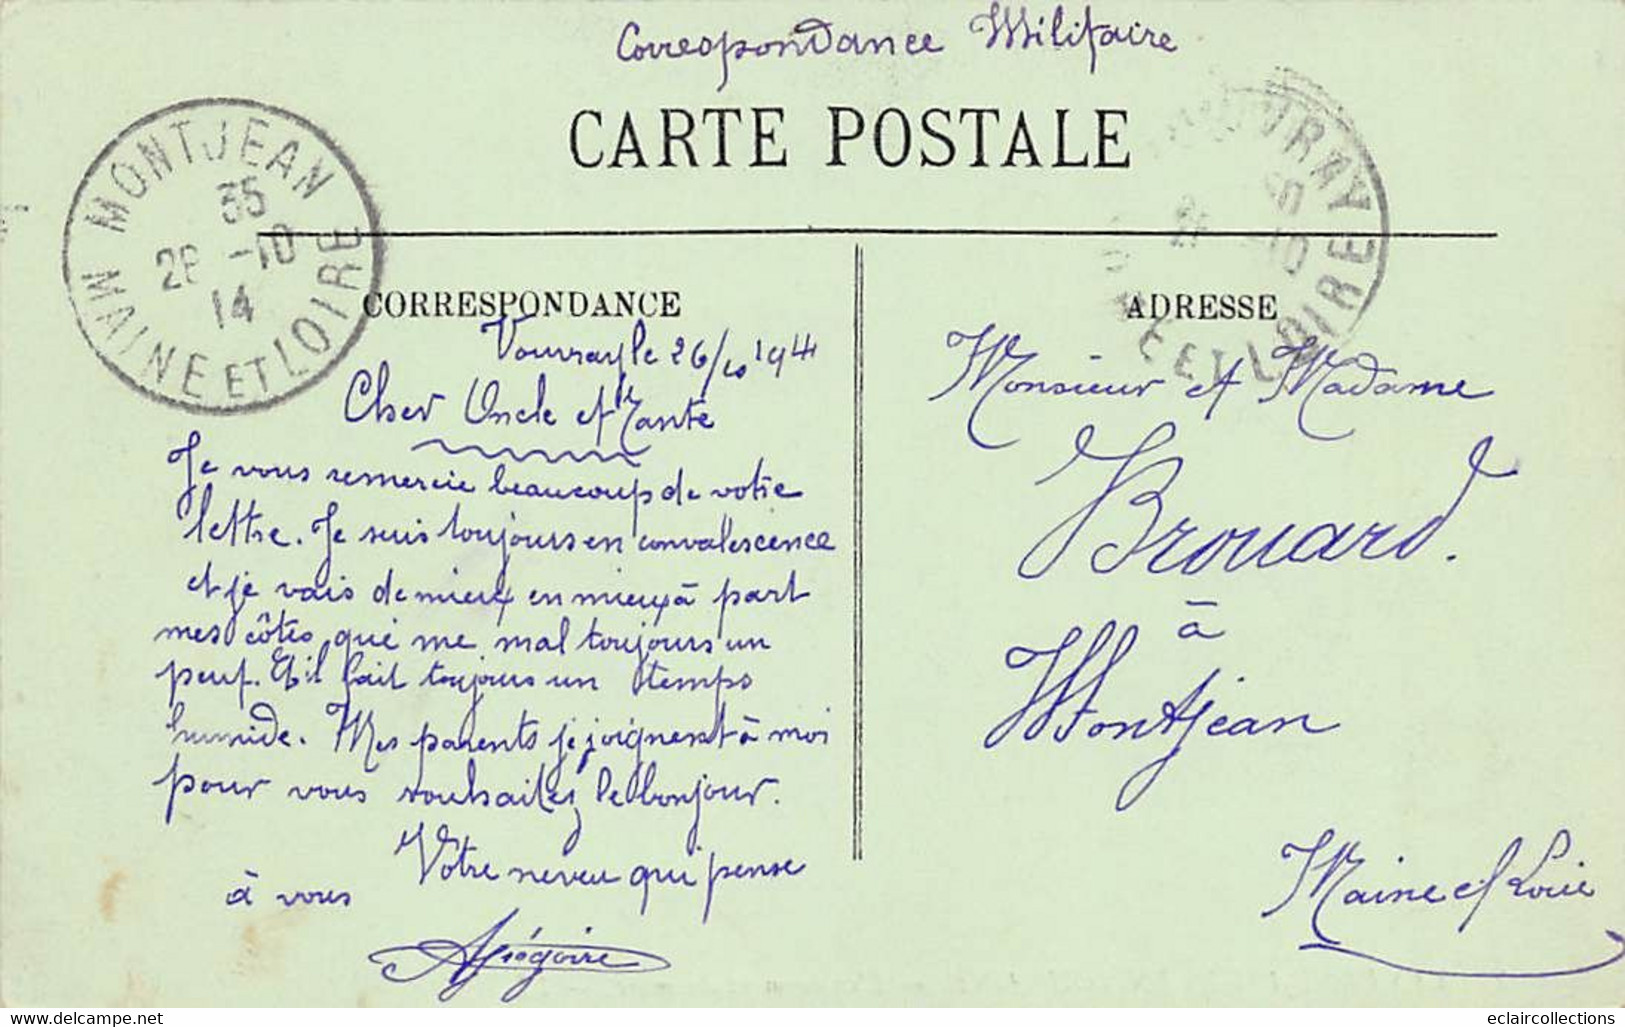 Correspondance Militaire
CARTE POSTALE
MONTJEAN
35
28 -10
14
MAINE ET LOIRE
VOUVRAY
-10
ET LOIRE
CORRESPONDANCE
Vouvray le 26/10 1914
Cher Oncle et Tante
Je vous remercie beaucoup de votre
lettre. Je suis toujours en convalescence
et je vais de mieux en mieux à part
mes côtes que me mal toujours un
peuf. Et il fait toujours un temps
humide. Mes parents je joignent à moi
pour vous souhaitez le bonjour.
Votre neveu qui pense
à vous
AGrégoire
ADRESSE
Monsieur et Madame
Brouard.
à
Montjean
Maine et Loire
www.delcampe.net
eclaircollections